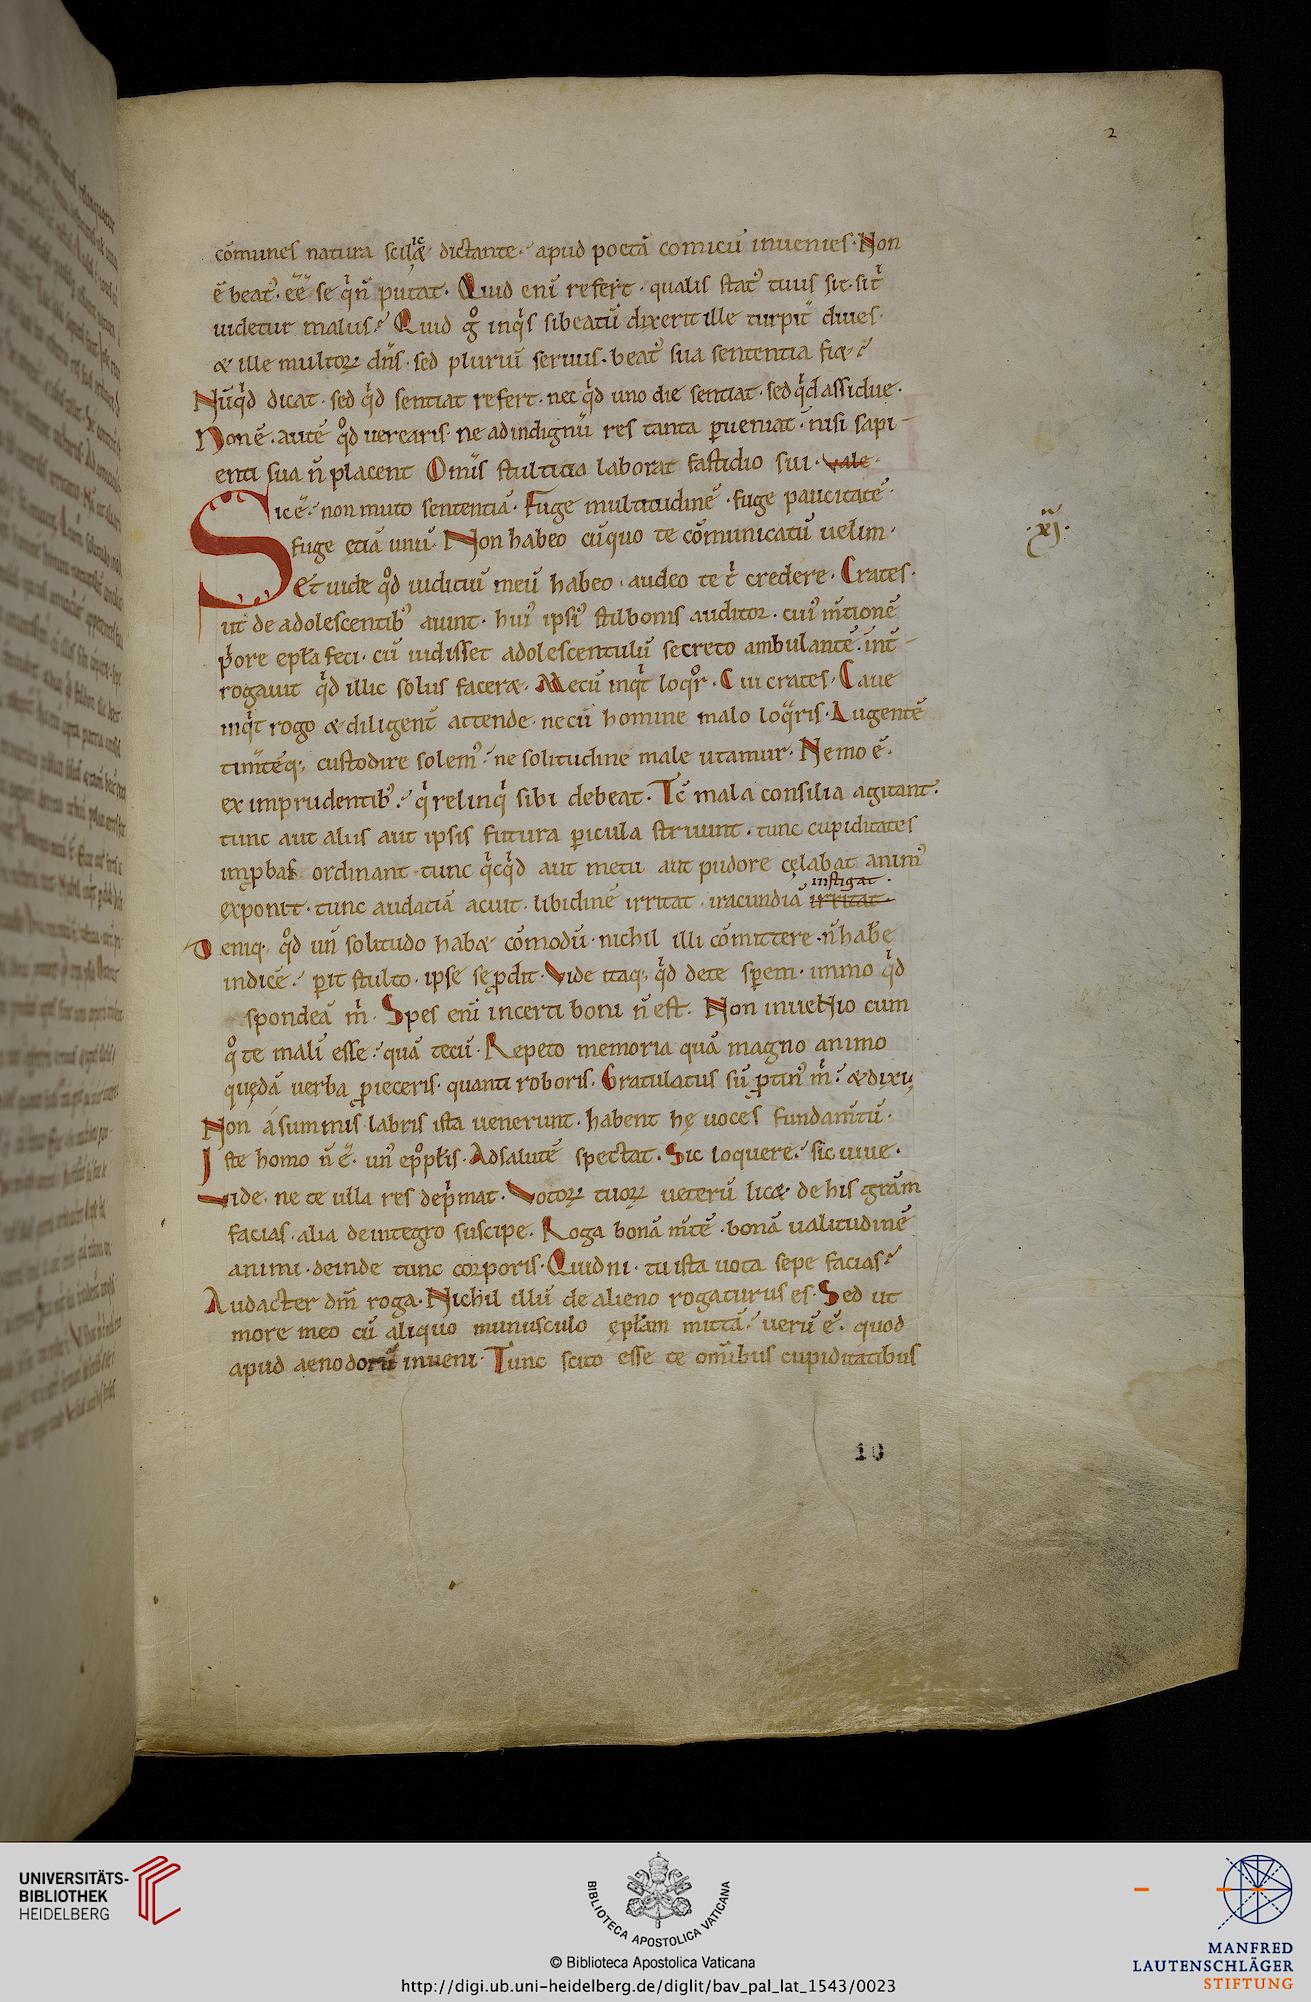 2
cōmunes natura scilicet dictante. apud poetā comicū inuenies. Non
ē beatꝰ. eē se qͥ n̄ putat. Quid eni refert. qualis statꝰ tuus sit. si tͥ
uidetur malus? Quid gͦ inqͥs si beatū dixerit ille turpit̄ diues.
& ille multoꝝ dn̄s. sed pluriū seruus. beatꝰ sua sententia fi&?
Nūqͥd dicat. sed qͥd sentiat refert. nec qͥd uno die sentiat. sed qͥd assidue.
Non ē. autē qͦd uerearis. ne ad indignū res tanta ꝑueniat. nisi sapi-
enti sua n̄ placent Omīs stulticia laborat fastidio sui. vale.
Sic ē. non muto sententiā. Fuge multitudinē. fuge paucitatē.
fuge etiā unū. Non habeo cū quo te cōmunicatū uelim.
Et uide qͦd iudiciū meū habeo. audeo te tͥ credere. Crates.
·xͥj·
ut de adolescentibꝰ aiunt. huiꝰ ipsiꝰ stilbonis auditoꝛ. cuiꝰ m̄tionē
pͥore epła feci. cū uidisset adolescentulū secreto ambulantē. int̄-
rogauit qͥd illic solus facer&. Mecū inqͥt loqͦr. Cui crates. Caue
inqͥt rogo & diligent̄ attende. ne cū homine malo loqͣris. Lugentē
timͤteq; custodire solemꝰ. ne solitudine male utamur. Nemo ē.
ex imprudentibꝰ. qͥ relinqͥ sibi debeat. Tc̄ mala consilia agitant.
tunc aut aliis aut ipsis futura ꝑicula struunt. tunc cupiditates
imꝓbas ordinant. tunc qͥcqͥd aut metu aut pudore cęlabat animꝰ
instigat.
exponit. tunc audaciā acuit. libidinē irritat. iracundiā irritat.
Deniq; qͦd un̄ solitudo hab& cōmodū. nichil illi cōmittere. n̄ habe
indicē. ꝑit stulto. ipse se ꝓdit. Vide itaq; qͥd de te sꝑem. immo qͥd
spondeā mͥ. Spes eni incerti boni n̄ est. Non inuenio cum
qͦ te malī esse. quā tecū. Repeto memoria quā magno animo
quędā verba ꝓieceris. quanti roboris. Gratulatus sū ꝓtinꝰ mͥ. & dixi;
Non á summis labris ista uenerunt. habent hę uoces fundam̄tū.
Iste homo n̄ ē. unꝰ epͦpłis. Ad salutē spectat. Sic loquere. sic uiue.
Vide. ne te ulla res depͥmat. Votoꝝ tuoꝝ ueterū lic& de his gram̄
facias. alia de integro suscipe. Roga bonā m̄tē. bonā ualitudinē
animi. deinde tunc corporis. Quid ni. tu ista uota sepe facias?
Audacter dm̄ roga. Nichil illū de alieno rogaturus es. Sed ut
more meo cū aliquo munusculo epłam mittā. uerū ē. quod
apud aenodorū inueni. Tunc scito esse te om̄ibus cupiditatibus
10
UNIVERSITÄTS-
BIBLIOTHEK
HEIDELBERG
BIBLIOTECA APOSTOLICA VATICANA
© Biblioteca Apostolica Vaticana
http://digi.ub.uni-heidelberg.de/diglit/bav_pal_lat_1543/0023
MANFRED
LAUTENSCHLÄGER
STIFTUNG